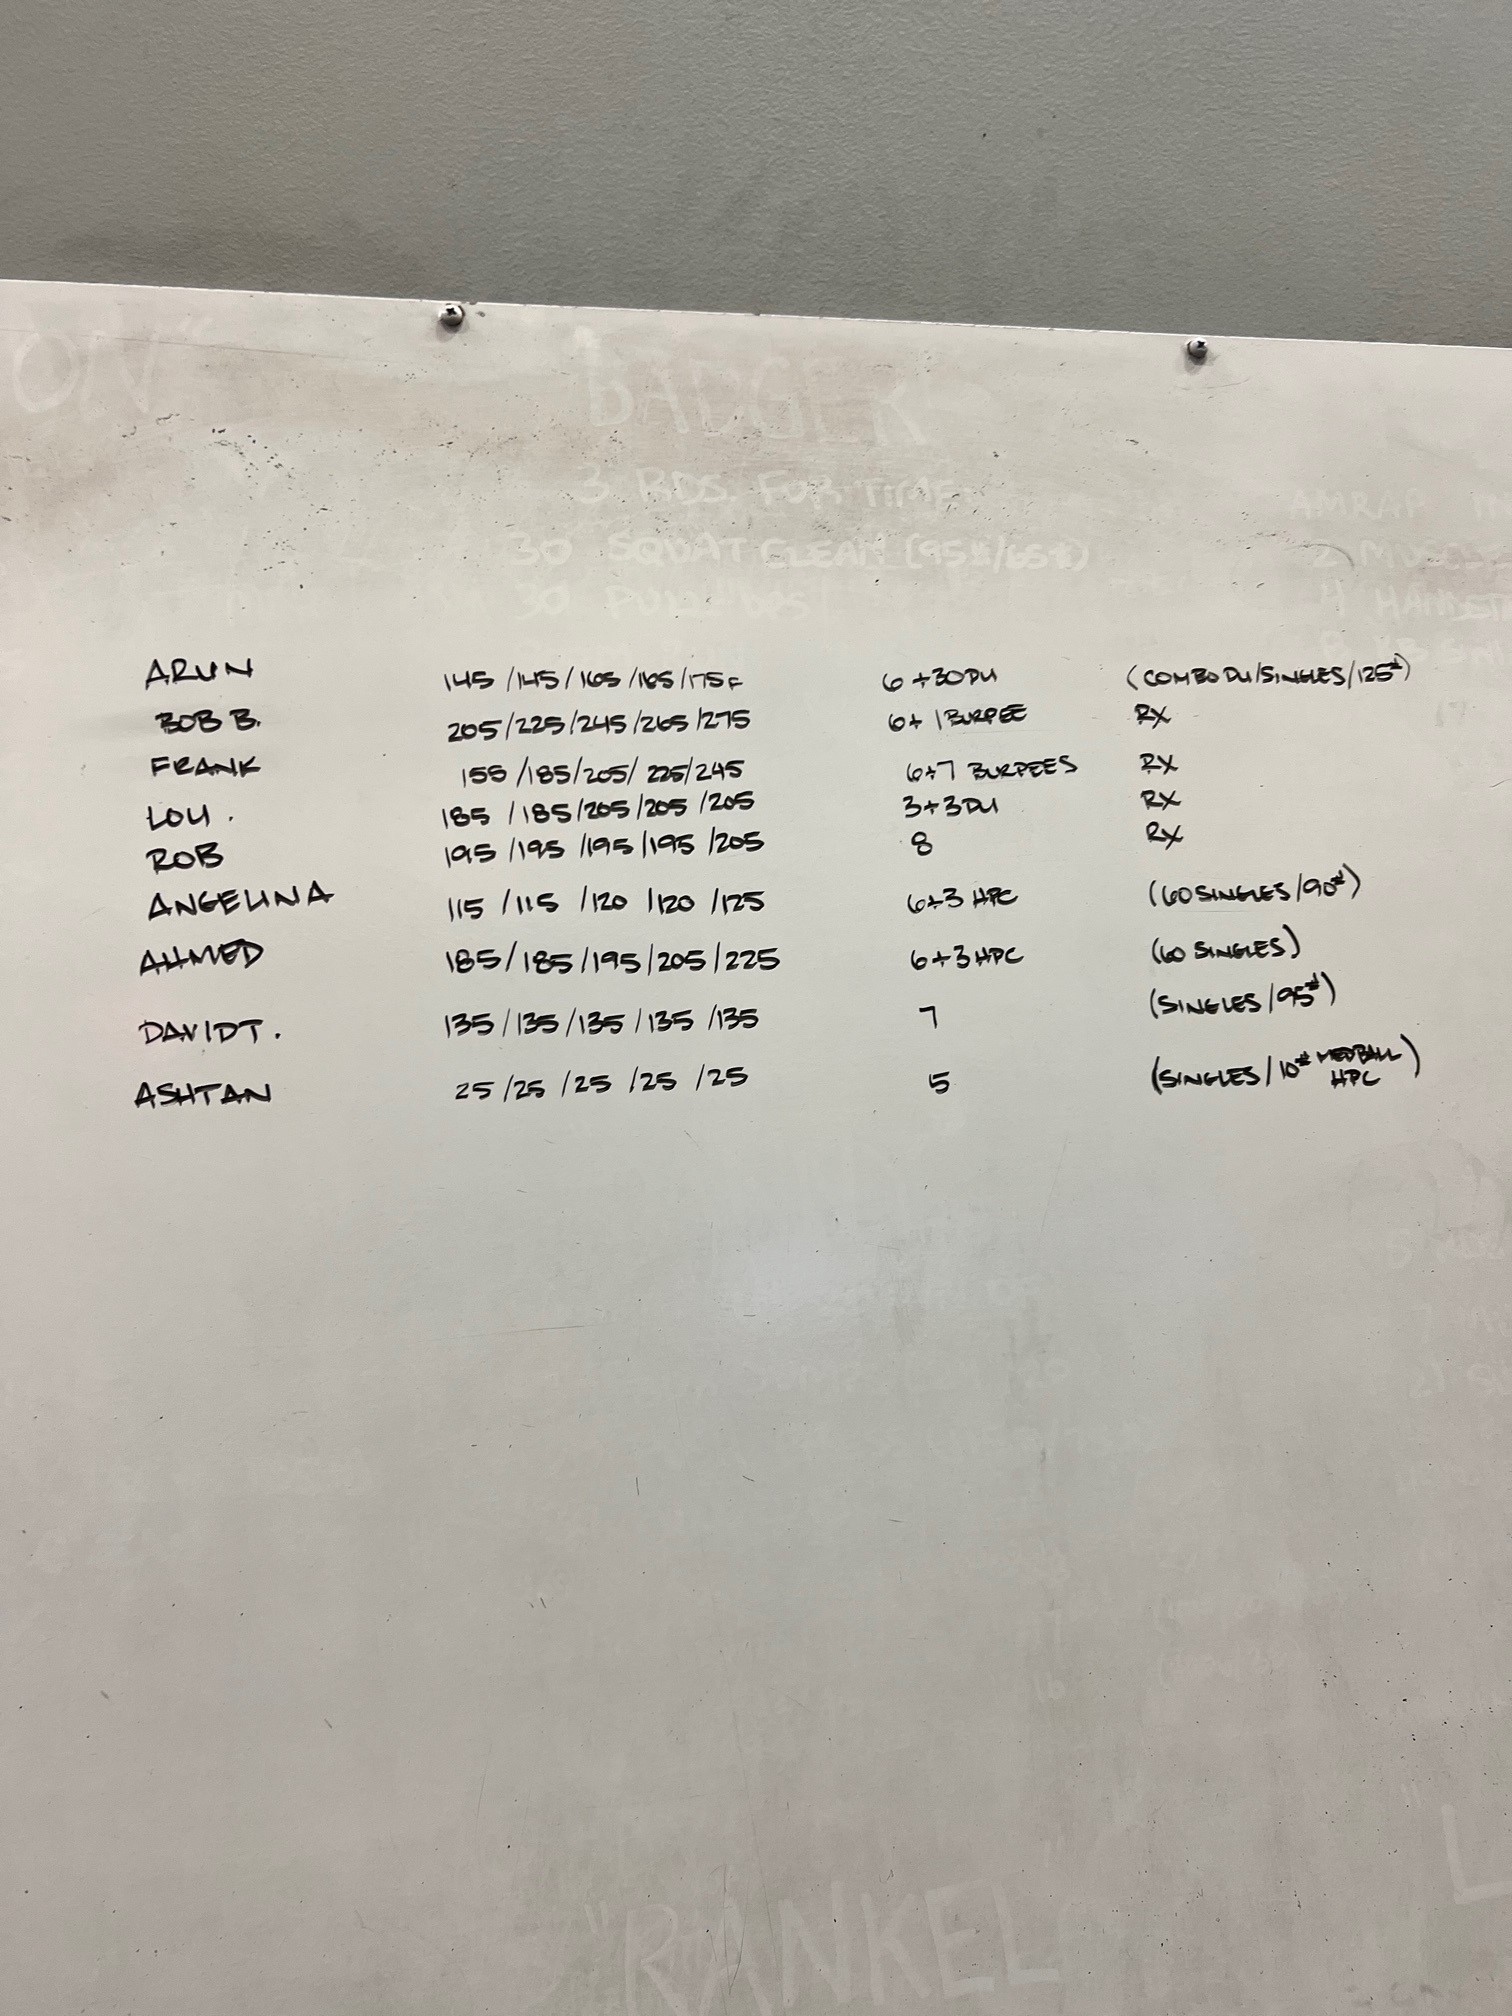 ON
BADGER
3 RDS. FOR TIME
30 SQUAT CLEAN (95#/65#)
30 PULL-UPS
AMRAP
ARUN 145/145/165/165/175F 6+30DU (COMBO DU/SINGLES/125#)
BOB B. 205/225/245/265/275 6+1 BURPEE RX
FRANK 155/185/205/225/245 6+7 BURPEES RX
LOU. 185/185/205/205/205 3+3DU RX
ROB 195/195/195/195/205 8 RX
ANGELINA 115/115/120/120/125 6+3 HPC (60 SINGLES/90#)
AHMED 185/185/195/205/225 6+3 HPC (60 SINGLES)
DAVID T. 135/135/135/135/135 7 (SINGLES/95#)
ASHTAN 25/25/25/25/25 5 (SINGLES/10# MEDBALL HPC)
"RANKEL"